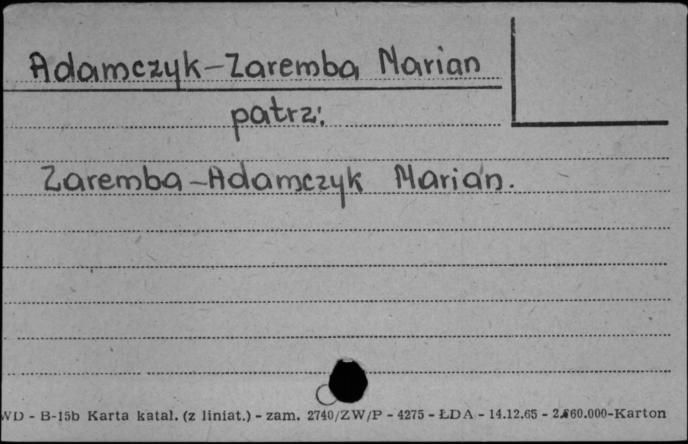 Adamczyk-Zaremba Marian
patrz:
Zaremba-Adamczyk Marian.
WD - B-15b Karta katal. (z liniat.) - zam. 2740/ZW/P - 4275 - ŁDA - 14.12.65 - 2.860.000-Karton